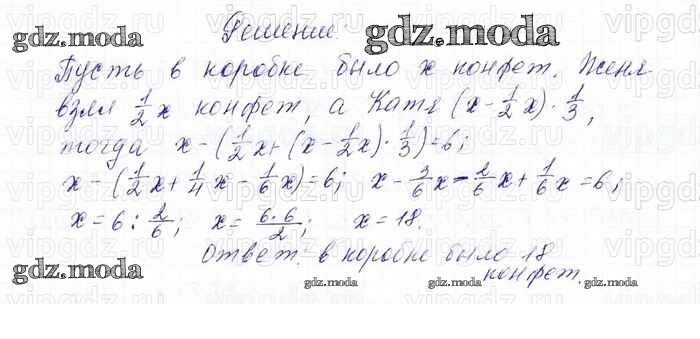 gdz.moda Решение: gdz.moda
Пусть в коробке было x конфет. Женя
взял 1/2 x конфет, а Катя (x - 1/2 x) · 1/3,
тогда x - (1/2 x + (x - 1/2 x) · 1/3) = 6;
x - (1/2 x + 1/4 x - 1/6 x) = 6; x - 3/6 x - 2/6 x + 1/6 x = 6;
x = 6 : 2/6; x = 6·6/2; x = 18.
Ответ: в коробке было 18
gdz.moda конфет.
gdz.moda gdz.moda